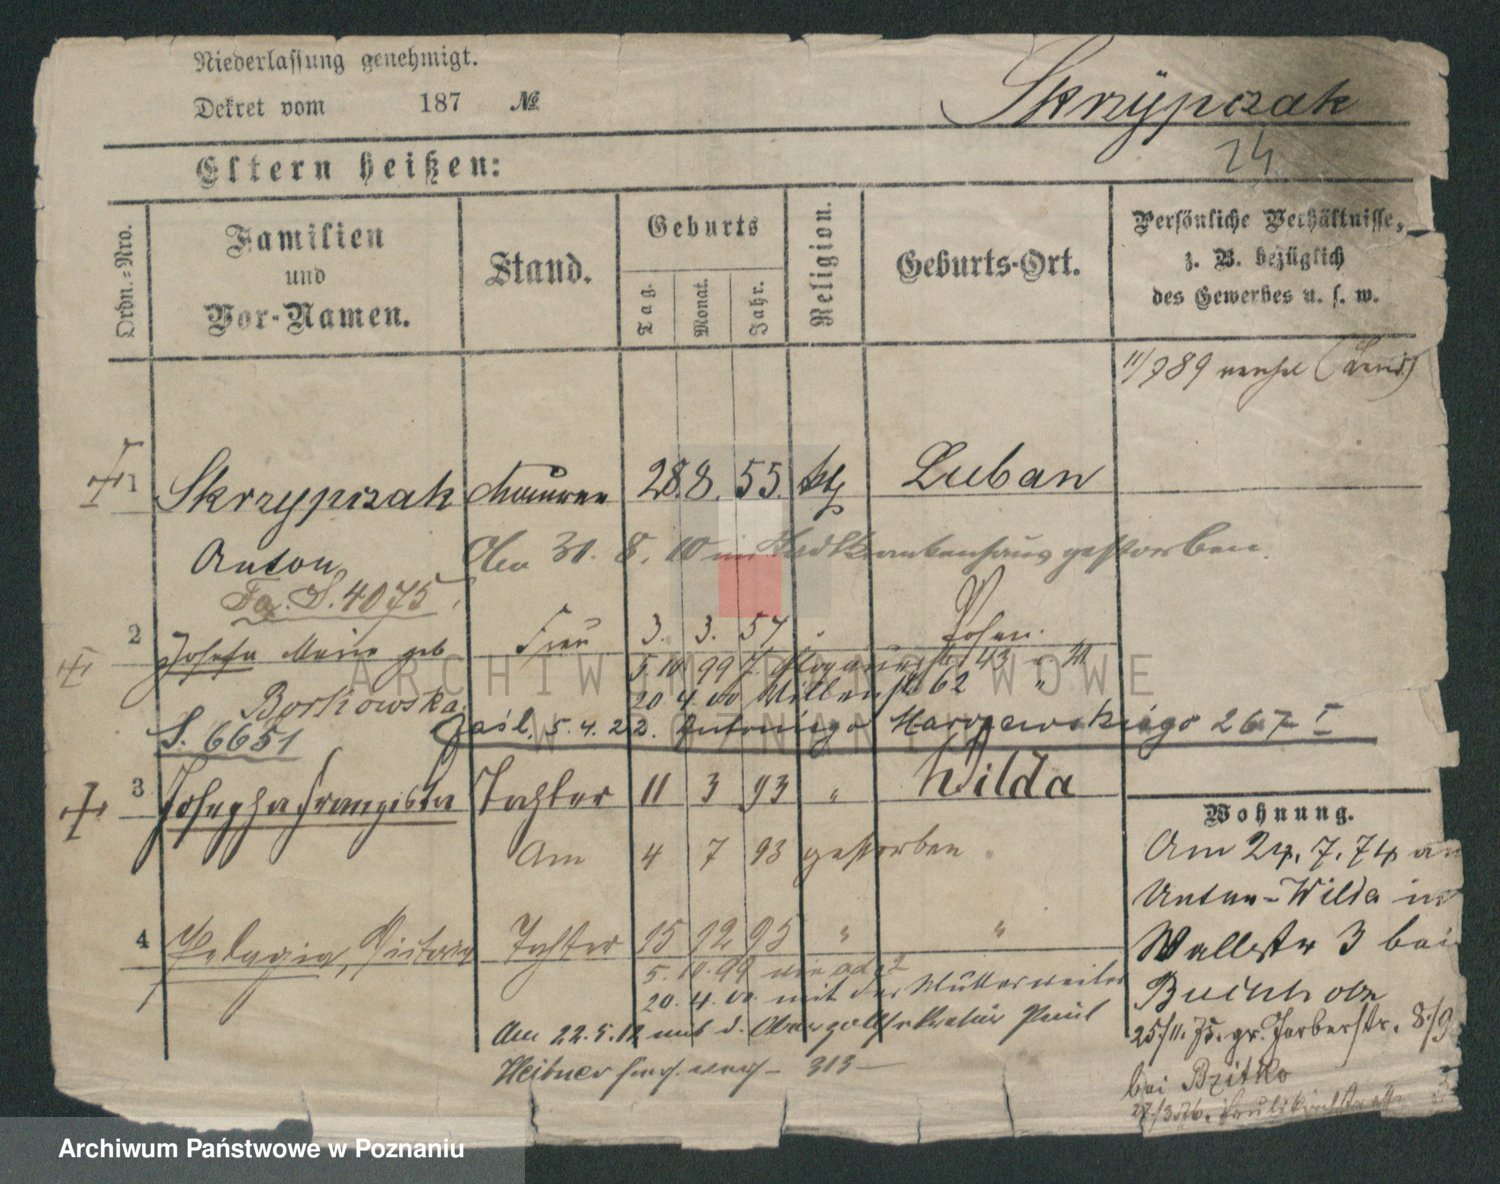 Niederlassung genehmigt.
Dekret vom 187 №
Skrzypczak
24
Eltern heißen:
Ordn.=Nro.
Familien
und
Vor-Namen.
Stand.
Geburts
Tag.
Monat.
Jahr.
Religion.
Geburts-Ort.
Persönliche Verhältnisse,
z. B. bezüglich
des Gewerbes u. s. w.
11/789
1 Skrzypczak Maurer 28. 8. 55. kth Luban
Anton Am 31. 8. 10 im Stadtkrankenhaus gestorben.
Fa. S. 4075
2 Josefa Marie geb Frau 3. 3. 57 Posen.
5. 10. 99 43
Borkowska 20 4 00 62 "
S. 6651 5. 4. 22. 267 I
3 Josepha Franziska Tochter 11 3 93 " Wilda
Am 4 7 93 gestorben
4 Pelagia, Tochter 15 12 95 " "
5. 10. 99 wie ad 2
20. 4. 00 mit der Mutter
Am 22. 5. 12 mit d. Oberzollsekretär Paul
313
Wohnung.
Am 24. 7. 74 an
Unter-Wilda in
Wallstr 3 bei
25/11. 75. gr. Gerberstr. 8/9
bei Bzitko
ARCHIWUM PAŃSTWOWE
W POZNANIU
Archiwum Państwowe w Poznaniu